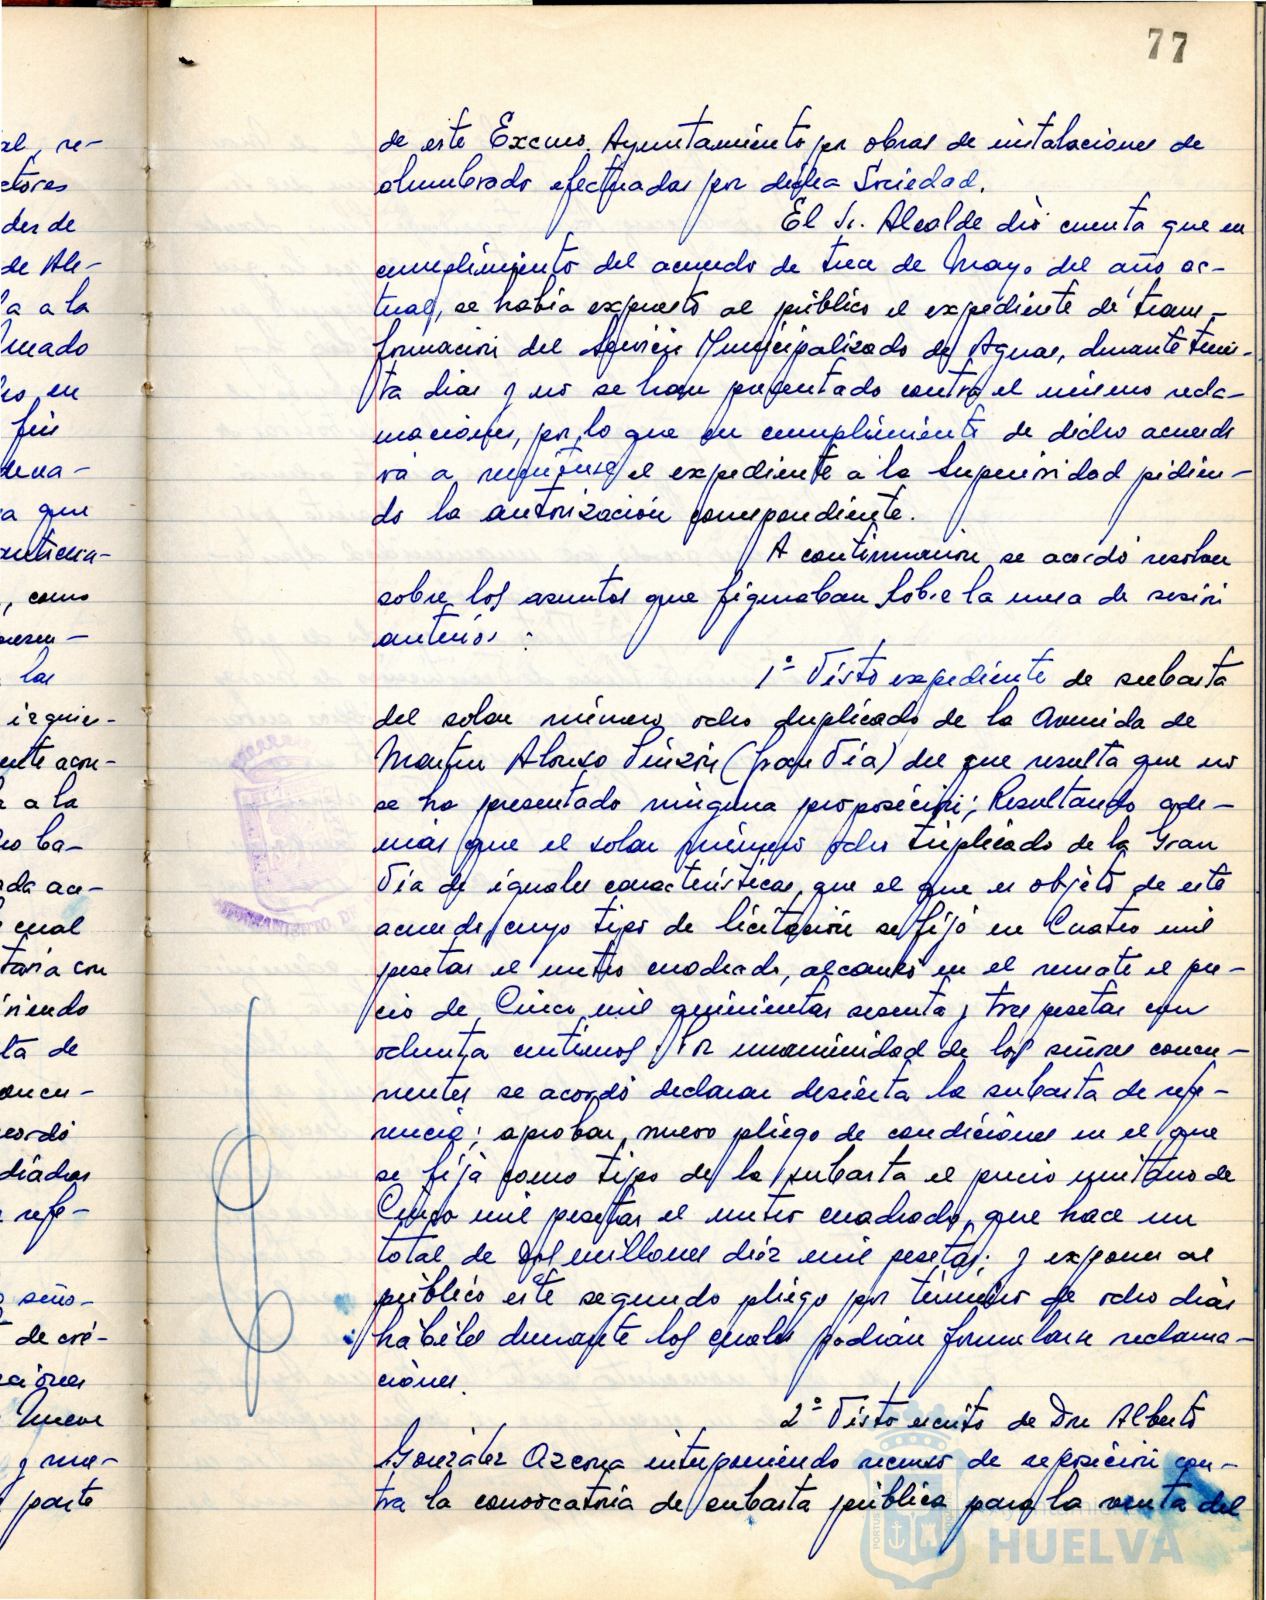 77
al, re-
ctores
der de
de Ale-
a a la
en
fin
a que
, como
las
a la
cual
taria con
niendo
ta de
cordó
refe-
seño-
de cré-
ciones
Nueve
parte
de este Excmo. Ayuntamiento por obras de instalaciones de
alumbrado efectuadas por dicha Sociedad.
El Sr. Alcalde dió cuenta que en
cumplimiento del acuerdo de trece de Mayo del año ac-
tual, se había expuesto al público el expediente de trans-
formación del Servicio Municipalizado de Aguas, durante trein-
ta dias y no se han presentado contra el mismo recla-
maciones, por lo que en cumplimiento de dicho acuerdo
vá a remitirse el expediente a la Superioridad pidien-
do la autorización correspondiente.
A continuación se acordó resolver
sobre los asuntos que figuraban sobre la mesa de sesión
anterior:
1º Visto expediente de subasta
del solar número ocho duplicado de la Avenida de
Martín Alonso Pinzón (Gran Vía) del que resulta que no
se ha presentado ninguna proposición; Resultando ade-
más que el solar número ocho triplicado de la Gran
Vía de iguales características que el que es objeto de este
acuerdo, cuyo tipo de licitación se fijó en Cuatro mil
pesetas el metro cuadrado, alcanzó en el remate el pre-
cio de Cinco mil quinientas sesenta y tres pesetas con
ochenta centimos; Por unanimidad de los señores concu-
rrentes se acordó declarar desierta la subasta de refe-
rencia; aprobar nuevo pliego de condiciones en el que
se fija como tipo de la subasta el precio unitario de
Cinco mil pesetas el metro cuadrado, que hace un
total de dos millones diéz mil pesetas; y exponer al
público este segundo pliego por término de ocho dias
hábiles durante los cuales podrán formularse reclama-
ciones.
2º Visto escrito de Don Alberto
González Azcona interponiendo recurso de reposición con-
tra la convocatoria de subasta pública para la venta del
Ayuntamiento
HUELVA